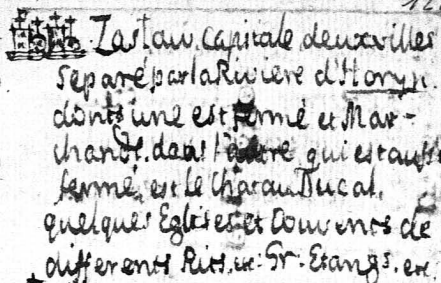 12
Zaslaw, capitale deux villes
separé par la Riviere d'Horyn.
donts une est fermé et Mar-
chande. dans l'autre qui est aussi
fermé, est le Chatau Ducal.
quelques Eglises et Couvents de
differents Rits, etc: Gr. Etangs. etc.